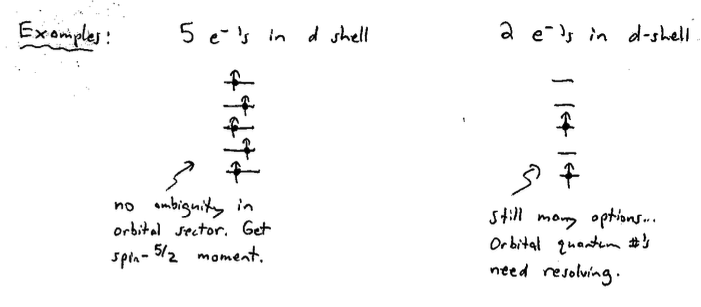 Examples: 5 e⁻'s in d shell 2 e⁻'s in d-shell
no ambiguity in
orbital sector. Get
spin-5/2 moment.
still many options...
Orbital quantum #'s
need resolving.